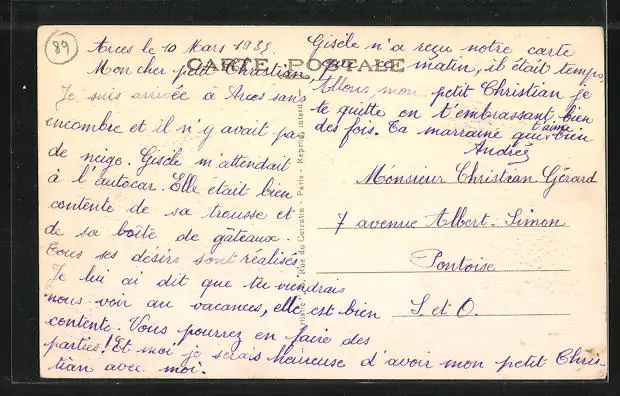 89
Arces le 10 Mars 193
CARTE POSTALE
Mon cher petit Christian,
Je suis arrivée à Arces sans
encombre et il n'y avait pas
de neige. Gisèle m'attendait
à l'autocar. Elle était bien
contente de sa trousse et
de sa boîte de gâteaux.
Tous ses désirs sont réalisés
Je lui ai dit que tu viendrais
nous voir au vacances, elle est bien
contente. Vous pourrez en faire des
parties! Et moi je serais heureuse d'avoir mon petit Chris
tian avec moi.
Gisèle n'a reçu notre carte
que ce matin, il était temps.
Allons mon petit Christian je
te quitte en t'embrassant bien
des fois. Ta marraine qui t'aime bien
Andrée
Rue du Cotentin - Paris - Reprod. interd.
Monsieur Christian Gérard
7 avenue Albert. Simon
Pontoise
S. et O.